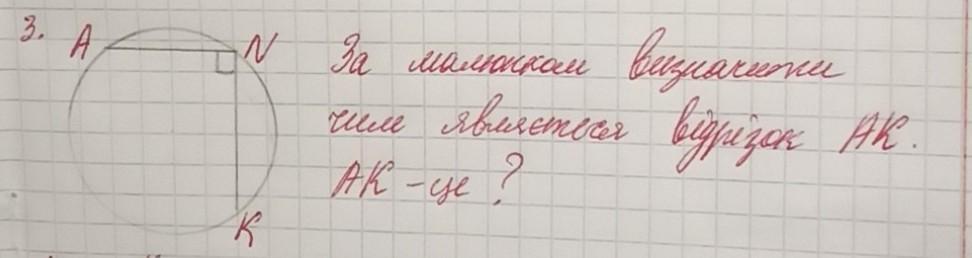 3.
A
N
K
За малюнком визначити
чим являється відрізок АК.
АК - це ?